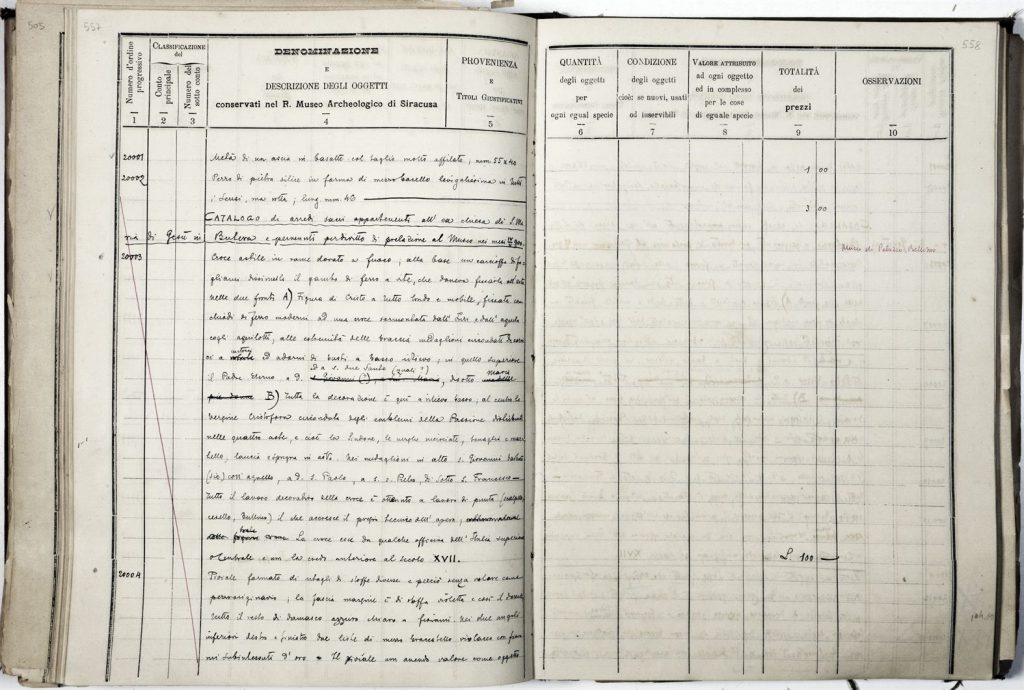 505
557
Numero d'ordine progressivo
CLASSIFICAZIONE
del
Conto principale
Numero del sotto conto
DENOMINAZIONE
E
DESCRIZIONE DEGLI OGGETTI
conservati nel R. Museo Archeologico di Siracusa
PROVENIENZA
E
TITOLI GIUSTIFICATIVI
1 2 3 4 5
20001 Metà di un ascia in basalte col taglio molto affilato; mm. 55 x 40
20002 Pezzo di pietra silice in forma di mezzo levigatissima in tutti
i sensi, ma rotta; lung. mm. 43
CATALOGO di arredi sacri appartenenti all' ex chiesa di S. Ma
ria di Gesù in Butera e pervenuti per diritto di prelazione al Museo nei mesi
20003 Croce astile in rame dorato a fuoco; alla base un carcioffo di fo
gliami dissimula il gambo di ferro
nelle due fronti A) Figura di Cristo a tutto tondo e mobile, fissata con
chiodi di ferro moderni ad una croce sormontata dall' e dall' aquila
cogli aquilotti, alle estremità delle braccia medaglioni circondati
ed adorni di busti a basso rilievo; in quello superiore
D a s. due Santi (quali?) Maria
il Padre Eterno, a D. s. Giovanni (?), disotto
B) Tutta la decorazione è qui a rilievo basso; al centro la
Vergine Cristofora circondata degli emblemi della Passione distribuiti
nelle quattro aste, e cioè la Sindone, le verghe incrociate, tenaglia e mar
tello, lancia e spugna in asta. Nei medaglioni in alto S. Giovanni
(sic) coll' agnello, a D. S. Paolo, a s. S. Pietro, di sotto S. Francesco —
Tutto il lavoro decorativo della croce è ottenuto a lavoro di punta
cesello, bullino) il che accresce il pregio tecnico dell' opera,
La croce esce da qualche officina dell' Italia superiore
o Centrale e non la credo anteriore al secolo XVII.
20004 Piviale formato di ritagli di stoffe diverse e perciò senza valore come
pezzo originario; la fascia margine è di stoffa violetta e così il dorso
tutto il resto di damasco azzurro chiaro a fiorami. Nei due angoli
inferiori destro e sinistro due liste di mezzo broccatello violaceo con fiora
mi subintessuti d' oro = Il piviale non avendo valore come oggetto
558
QUANTITÀ
degli oggetti
per
ogni egual specie
CONDIZIONE
degli oggetti
cioè: se nuovi, usati
od inservibili
VALORE ATTRIBUITO
ad ogni oggetto
ed in complesso
per le cose
di eguale specie
TOTALITÀ
dei
prezzi
OSSERVAZIONI
6 7 8 9 10
1 00
3 00
Museo di Palazzo Bellomo
L. 100 —